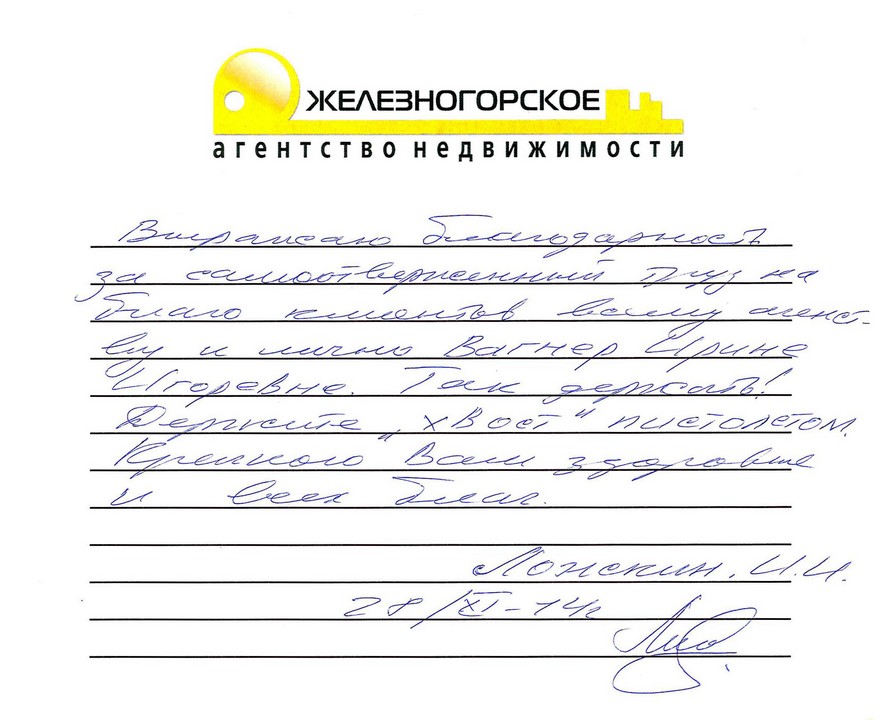 ЖЕЛЕЗНОГОРСКОЕ
агентство недвижимости
Выражаю благодарность
за самоотверженный труд на
благо клиентов всему агенст-
ву и лично Вагнер Ирине
Игоревне. Так держать!
Держите „хвост" пистолетом.
Крепкого Вам здоровье
и всех благ.
И.И.
28/XI-14г